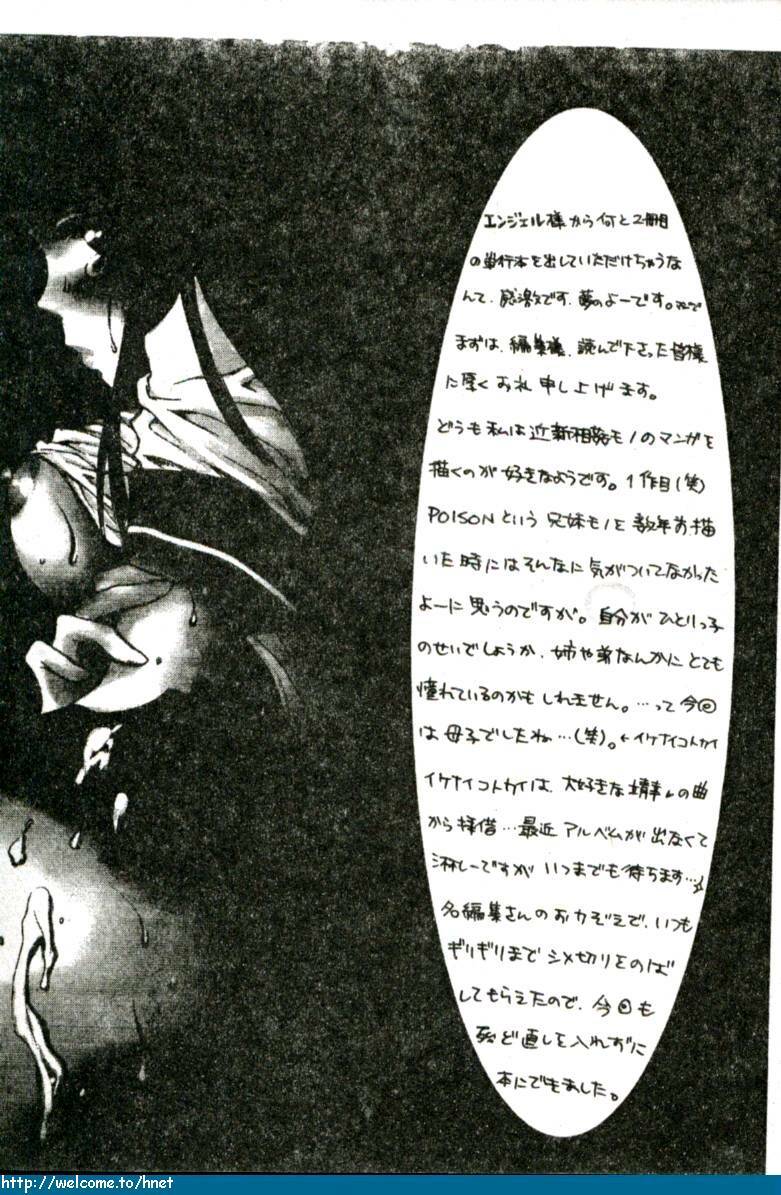 エンジェル様から何と2冊目
の単行本を出していただけちゃうな
んて、感激です、夢のよーです。
まずは、編集様、読んで下さった皆様
に厚くお礼申し上げます。
どうも私は近親相姦モノのマンガを
描くのが好きなようです。1作目(笑)
POISONという兄妹モノを数年前描
いた時にはそんなに気がついてなかった
よーに思うのですが。自分がひとりっ子
のせいでしょうか、姉や弟なんかにとても
憧れているのかもしれません。…って今回
は母子でしたね…(笑)。←イケナイコトカイ
イケナイコトカイは、大好きな の曲
から拝借…最近アルバムが出なくて
淋しーですがいつまでも待ちます…
名編集さんのおかぞえで、いつも
ギリギリまでシメ切りをのば
してもらえたので、今回も
殆ど直しを入れずに
本にできました。
http://welcome.to/hnet